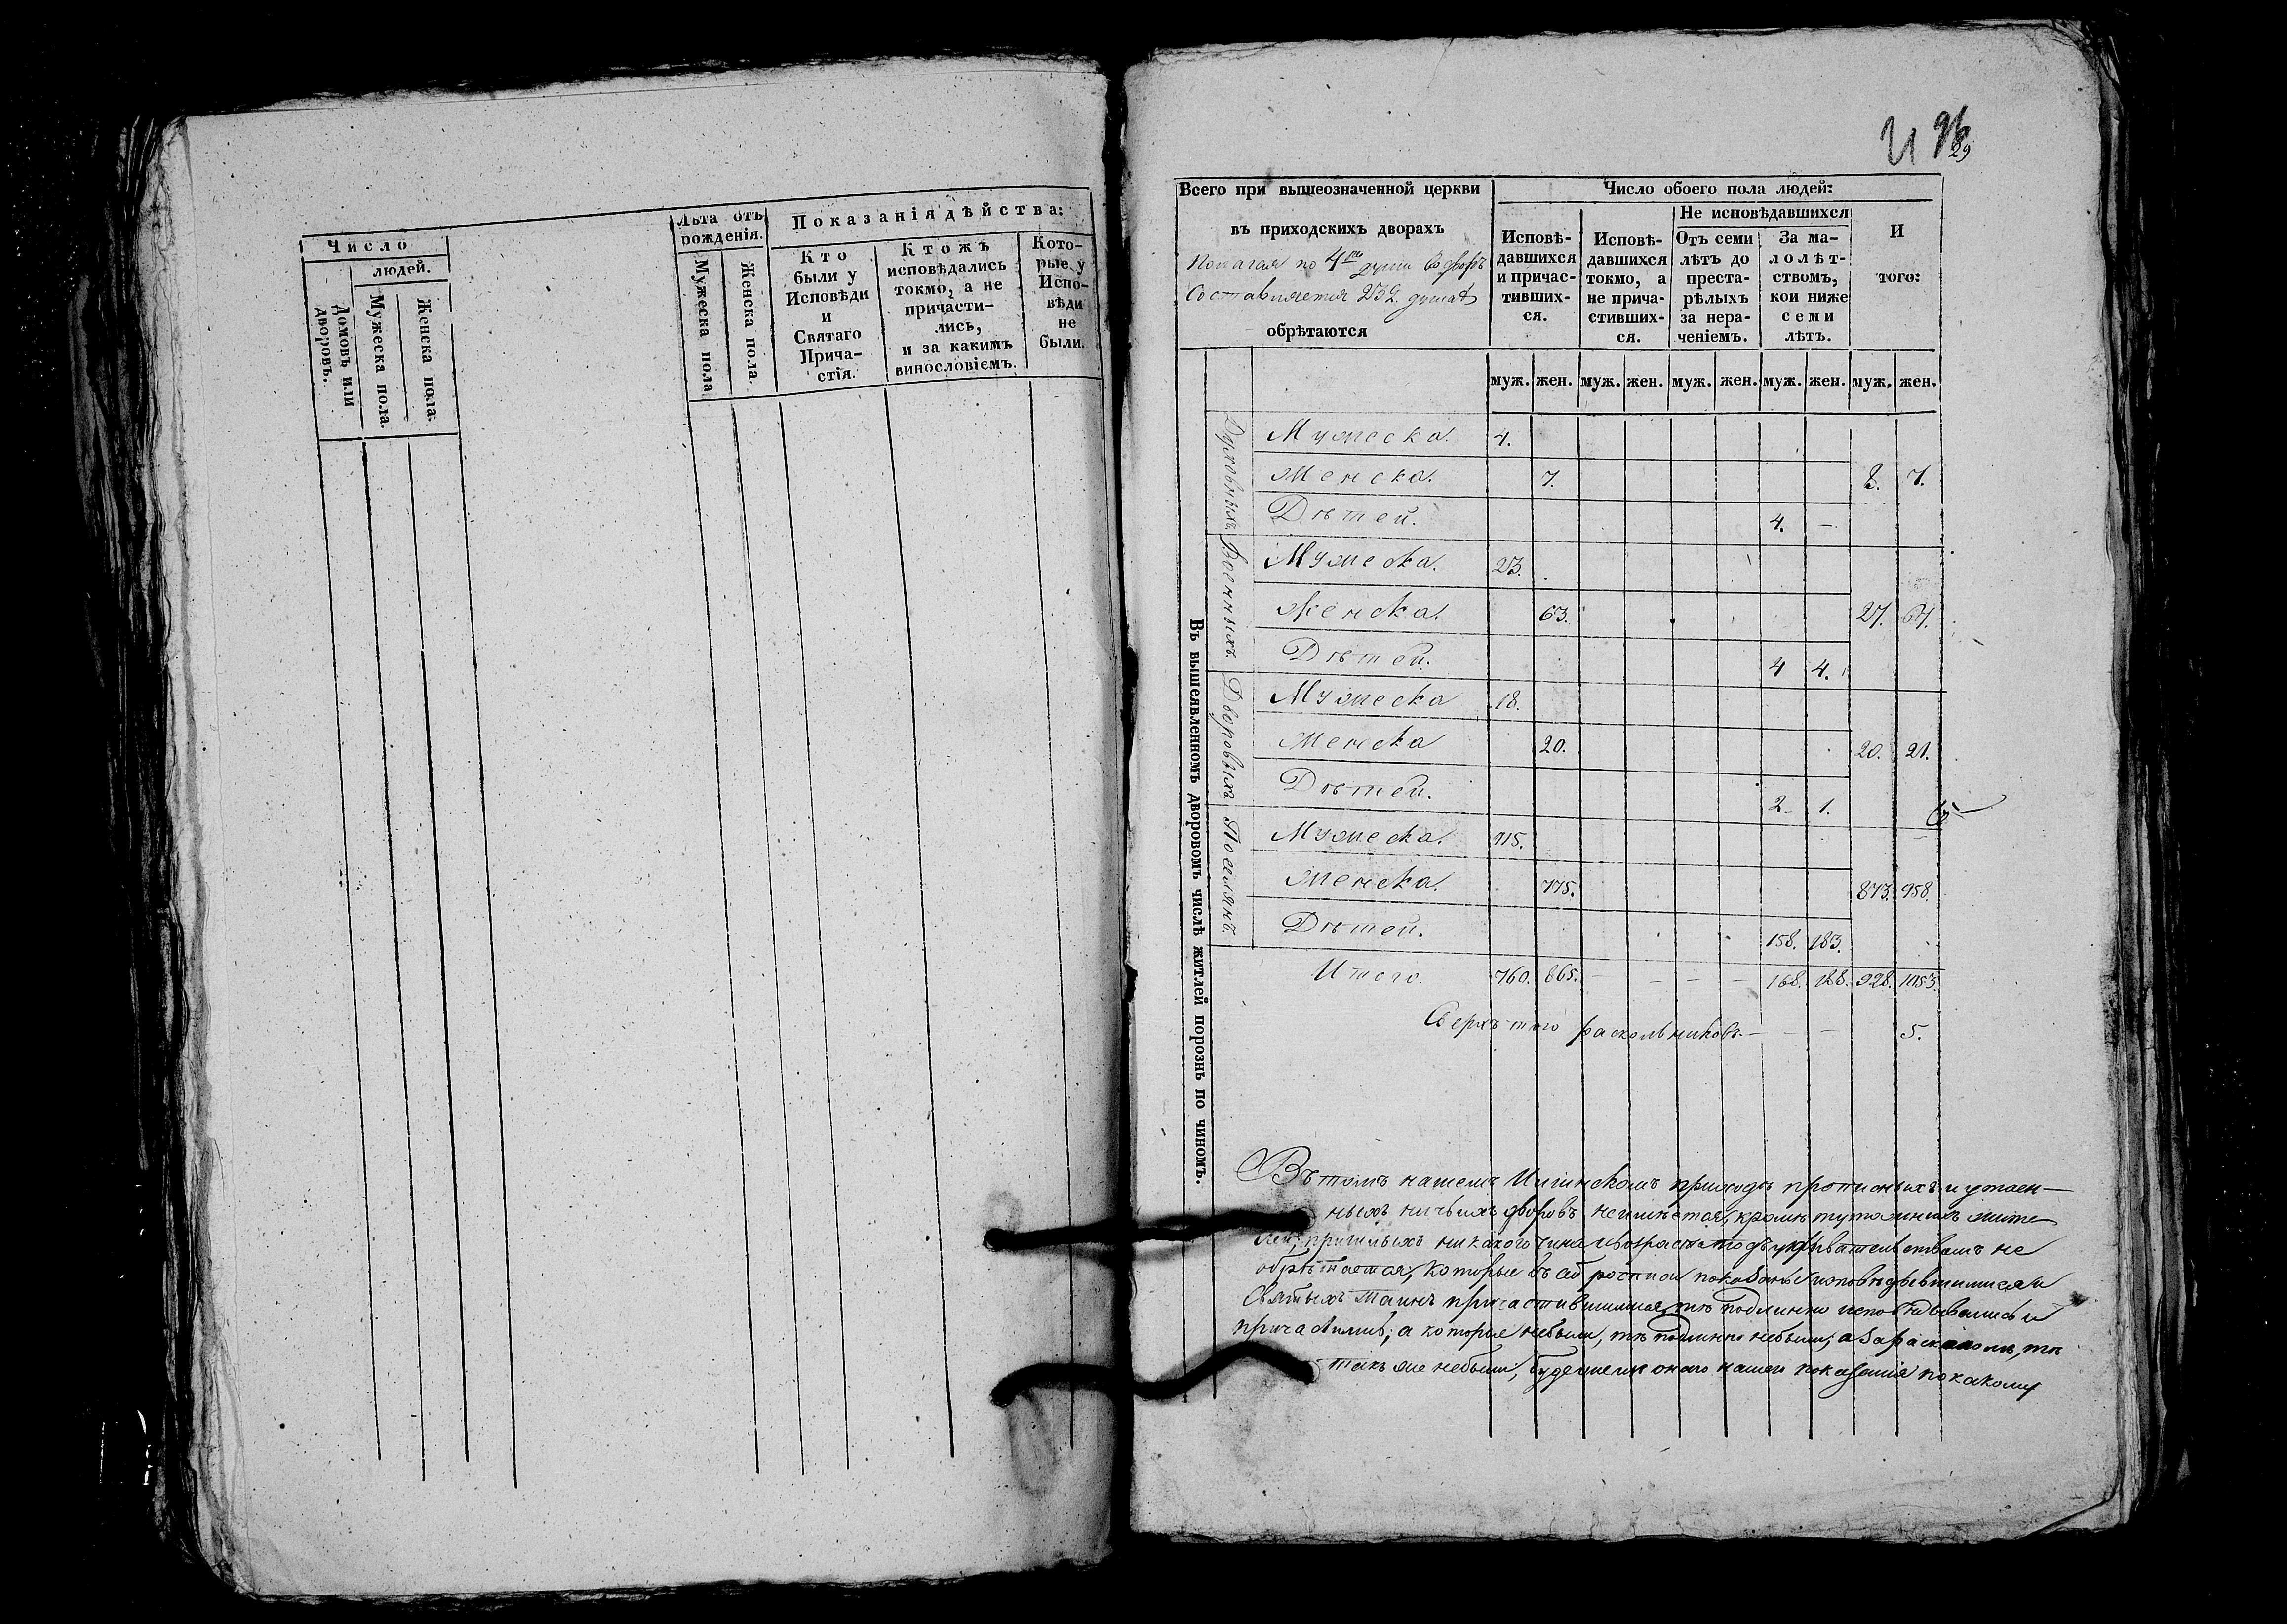 Число
людей.
Домовъ или дворовъ.
Мужеска пола.
Женска пола.
Лѣта отъ рожденія.
Мужеска пола
Женска пола.
Показанія дѣйства:
Кто были у Исповѣди и Святаго Причастія.
Ктожъ исповѣдались токмо, а не причастились, и за какимъ винословіемъ.
Которые у Исповѣди не были.
29
Всего при вышеозначенной церкви
въ приходскихъ дворахъ
Полагая по 4 души во дворъ
Составляется 232 душъ
обрѣтаются
Число обоего пола людей:
Исповѣ-
давшихся
и причас-
тивших-
ся.
Исповѣ-
давшихся
токмо, а
не прича-
стивших-
ся.
Не исповѣдавшихся
Отъ семи
лѣтъ до
преста-
рѣлыхъ
за нера-
ченіемъ.
За ма-
лолѣт-
ствомъ,
кои ниже
семи
лѣтъ.
И
того:
муж. жен. муж. жен. муж. жен. муж. жен. муж. жен.
Въ вышеявленномъ дворовомъ числѣ житлей порознь по чиномъ.
Духовныхъ.
Мужеска. 4.
Женска. 7. 8. 7.
Дѣтей. 4. –
Военныхъ.
Мужеска. 23.
Женска. 63. 27. 67.
Дѣтей. 4 4.
Дворовыхъ.
Мужеска 18.
Женска 20. 20. 21.
Дѣтей. 2. 1.
Поселянъ.
Мужеска. 715.
Женска. 775. 873. 958.
Дѣтей. 158. 183.
Итого. 760. 865. – – – – 168. 188. 928. 1053.
Сверхъ того раскольниковъ. – – – 5.
Въ томъ нашемъ приходѣ прописныхъ и утаен-
ныхъ ничьихъ дворовъ неимѣется, кромѣ тутошнихъ жите
лей, пришлыхъ никакого чина и возраста подъ укрывательствомъ не
обрѣтается, которые въ сей росписи показаны исповѣдывшимися и
Святыхъ Таинъ причастившимися, тѣ подлинно исповѣдывались и
причастились; а которые небыли, тѣ подлинно небыли; а за расколомъ, тѣ
такъ же небыли, буде же сего нашего показанія по какому